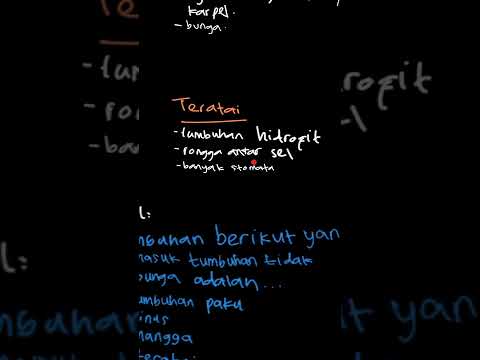 karpel.
- bunga.
Teratai
- tumbuhan hidrofit
- rongga antar sel
- banyak stomata
l:
berikut yan
masuk tumbuhan tidak
unga adalah...
umbuhan paku
inus
angga
teratai